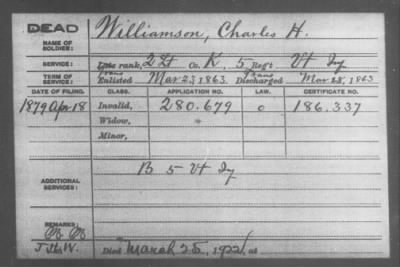 DEAD
NAME OF SOLDIER: Williamson, Charles H.
SERVICE: Late rank, 2 Lt Co. K, 5 Reg't Vt Iny
TERM OF SERVICE: Trans Enlisted Mar 23, 1863. Trans Discharged Mar 28, 1863
DATE OF FILING. CLASS. APPLICATION NO. LAW. CERTIFICATE NO.
1879 Apr 18 Invalid, 280.679 o 186.337
Widow,
Minor,
ADDITIONAL SERVICES: B 5 Vt Iny
REMARKS:
Died March 25, 1922, at